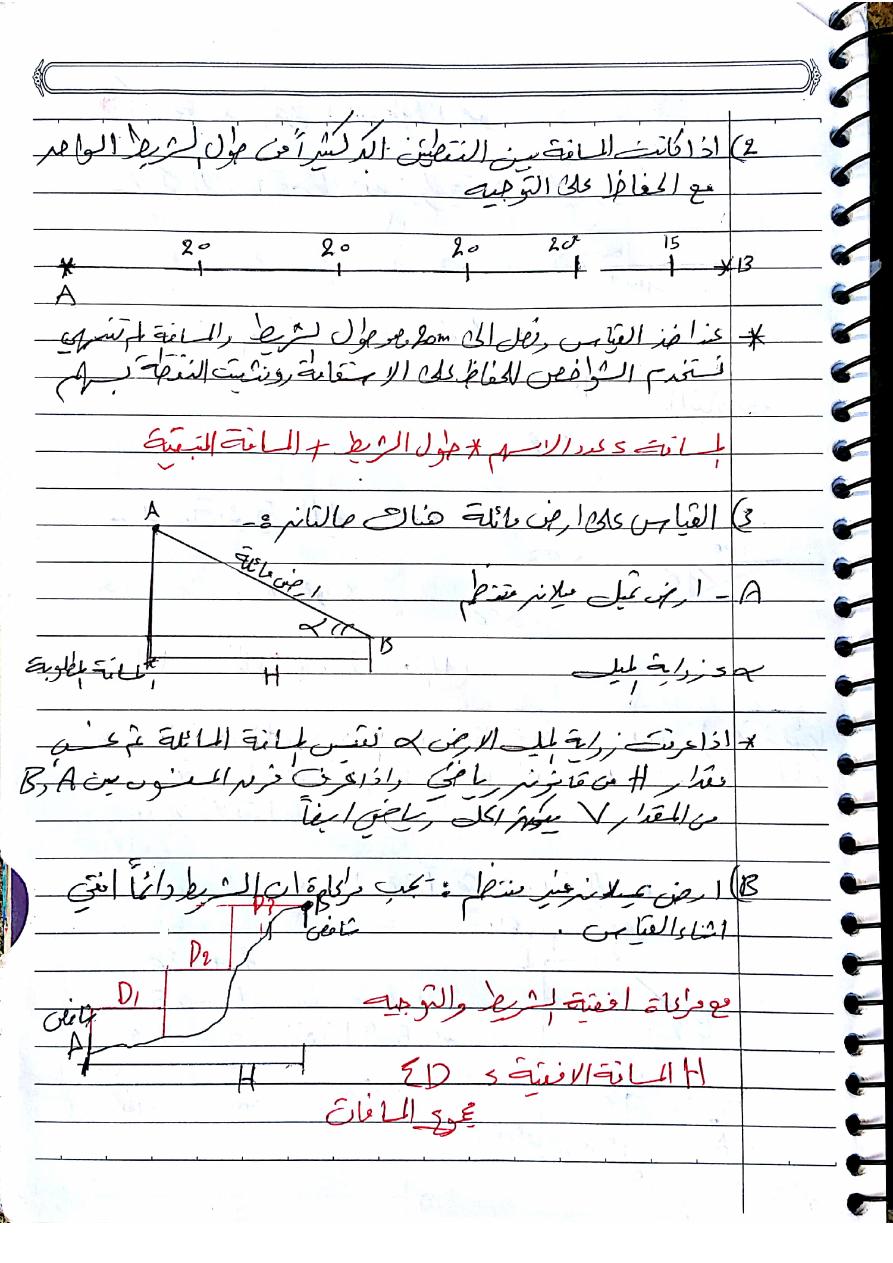 2) اذا كانت المسافة بين النقطتين اكبر كثيراً من طول الشريط الواحد
مع الحفاظ على التوجيه
20 20 20 20 15
A B
* عند اخذ القياس ونصل الى 20m وهو طول الشريط والمسافة لم تنتهي
نستخدم الشواخص للحفاظ على الاستقامة ونثبت النقطة بسهم
المسافة = عدد الاسهم * طول الشريط + المسافة المتبقية
3) القياس على ارض مائلة هناك حالتان :-
A
ارض مائلة
A - ارض تميل ميلان منتظم
α B
H
المسافة المطلوبة
α = زواية الميل
* اذا عرفت زواية ميل الارض α نقيس المسافة المائلة ثم نحسب
مقدار H من قانون رياضي واذا عرف فرق المنسوب بين A و B
من المقدار V يكون الحل رياضي ايضاً
B) ارض ميلان غير منتظم : يجب مراعاة ان الشريط دائماً افقي
اثناء القياس .
D3 B
شاخص
D2
D1
شاخص
A
H
مع مراعاة افقية الشريط والتوجيه
H المسافة الافقية = ΣD
مجموع المسافات